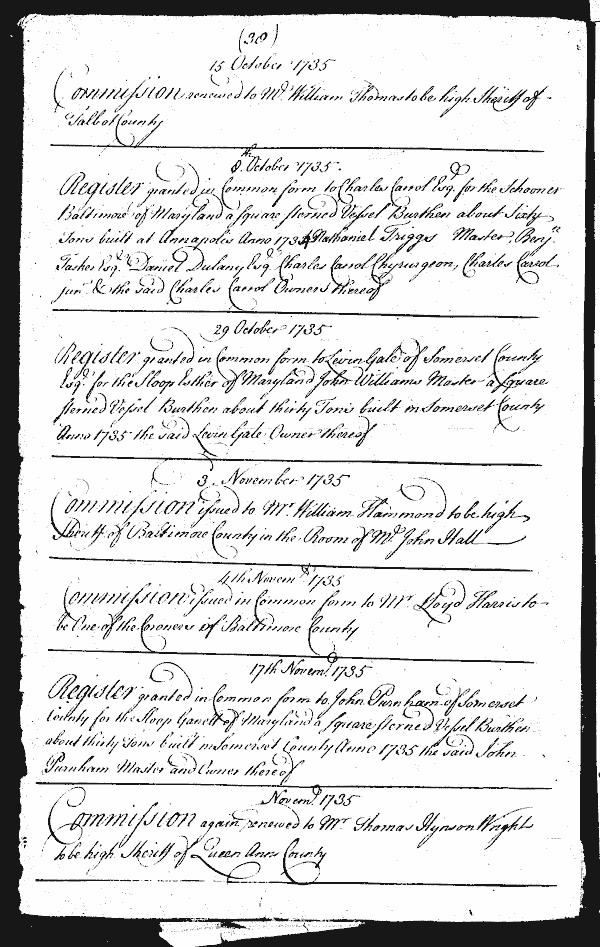 (38)
15 October 1735
Commission renewed to Mr. William Thomas to be high Sheriff of
Talbot County
8th October 1735.
Register granted in Common form to Charles Carrol Esqr. for the Schooner
Baltimore of Maryland a square sterned Vessel Burthen about Sixty
Tons built at Annapolis Anno 1734 Nathaniel Triggs Master, Benjn.
Tasker Esqr. Daniel Dulany Esqr. Charles Carrol Chyrurgeon, Charles Carrol
junr. & the said Charles Carrol Owners thereof
29 October 1735
Register granted in Common form to Levin Gale of Somerset County
Esqr. for the Sloop Esther of Maryland John Williams Master a square
sterned Vessel Burthen about thirty Tons built in Somerset County
Anno 1735 the said Levin Gale Owner thereof
3d. November 1735
Commission issued to Mr William Hammond to be high
Sheriff of Baltimore County in the Room of Mr. John Hall
4th Novemr. 1735
Commission issued in Common form to Mr Lloyd Harris to
be One of the Coroners of Baltimore County
17th Novemr. 1735
Register granted in Common form to John Purnham of Somerset
County for the Sloop of Maryland a square sterned Vessel Burthen
about thirty Tons built in Somerset County Anno 1735 the said John
Purnham Master and Owner thereof
Novemr. 1735
Commission again renewed to Mr Thomas Hynson Wright
to be high Sheriff of Queen Anns County